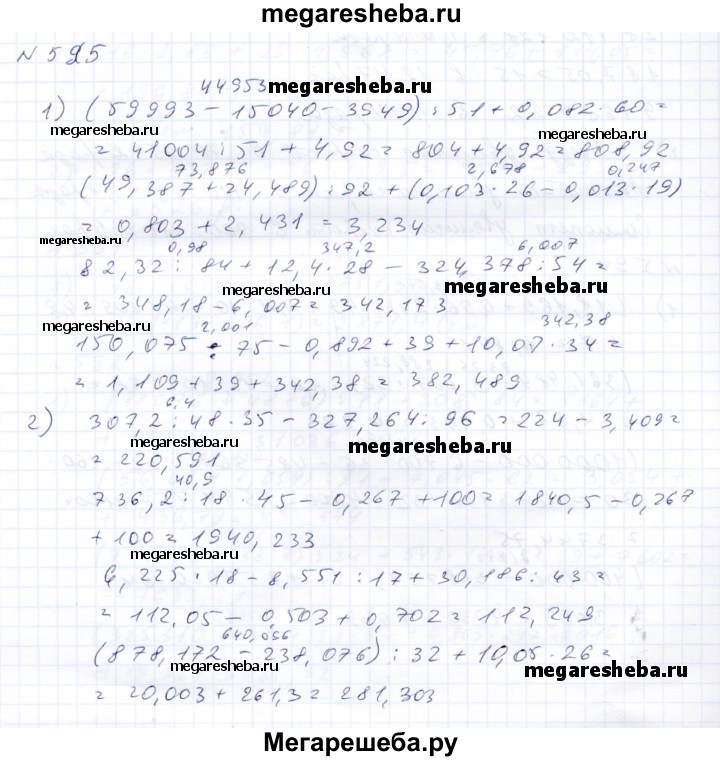 megaresheba.ru
N 595
44953 megaresheba.ru
1) (59993 - 15040 - 3949) : 51 + 0,082 · 60 =
megaresheba.ru megaresheba.ru
= 41004 : 51 + 4,92 = 804 + 4,92 = 808,92
73,876 2,678 0,247
(49,387 + 24,489) : 92 + (0,103 · 26 - 0,013 · 19)
= 0,803 + 2,431 = 3,234
megaresheba.ru
0,98 347,2 6,007
82,32 : 84 + 12,4 · 28 - 324,378 : 54 =
megaresheba.ru megaresheba.ru
= 348,18 - 6,007 = 342,173
megaresheba.ru 2,001 342,38
150,075 : 75 - 0,892 + 39 + 10,07 · 34 =
= 1,109 + 39 + 342,38 = 382,489
6,4
2) 307,2 : 48 · 35 - 327,264 : 96 = 224 - 3,409 =
megaresheba.ru megaresheba.ru
= 220,591
40,9
736,2 : 18 · 45 - 0,267 + 100 = 1840,5 - 0,267
+ 100 = 1940,233
megaresheba.ru
6,225 · 18 - 8,551 : 17 + 30,186 : 43 =
= 112,05 - 0,503 + 0,702 = 112,249
640,096
(878,172 - 238,076) : 32 + 10,05 · 26 =
megaresheba.ru megaresheba.ru
= 20,003 + 261,3 = 281,303
Мегарешеба.ру